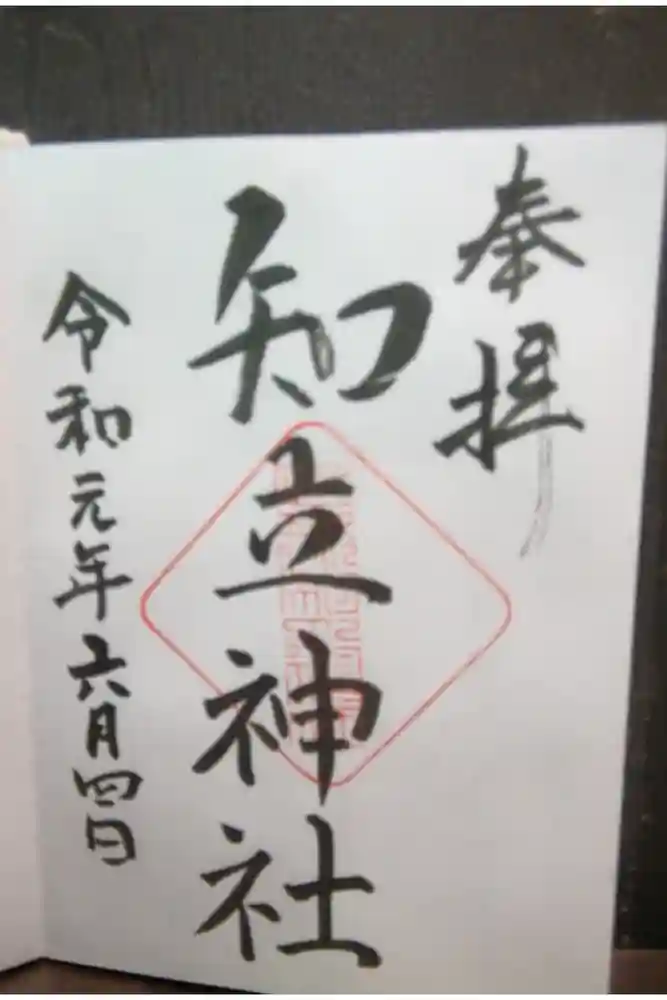 奉拝
知立神社
令和元年六月四日